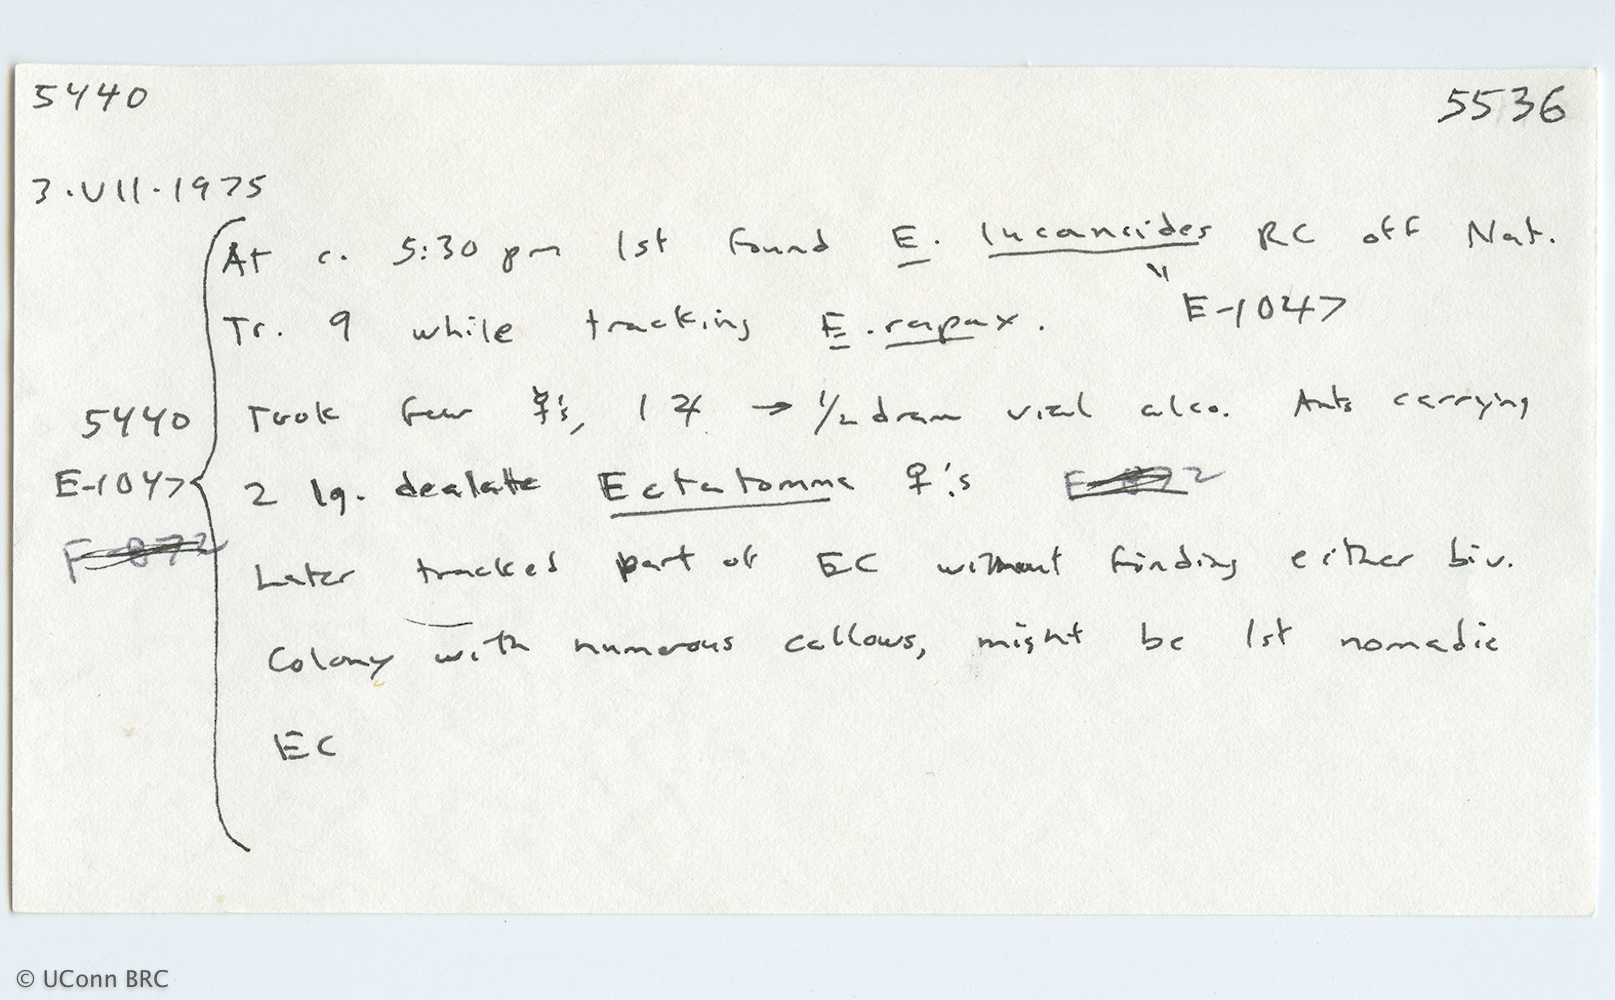 5440 5536
3.VII.1975
At c. 5:30 pm 1st found E. lucanoides RC off Nat.
" E-1047
Tr. 9 while tracking E. rapax.
5440 Took few ☿'s, 1 ♃ → 1/2 dram vial alco. Ants carrying
E-1047 2 lg. dealate Ectatomma ♀'s
Later tracked part of EC without finding either biv.
Colony with numerous callows, might be 1st nomadic
EC
© UConn BRC